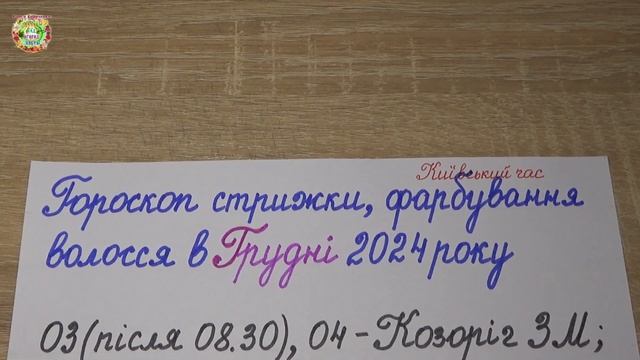 Київський час
Гороскоп стрижки, фарбування
волосся в Грудні 2024 року
03 (після 08.30), 04 - Козоріг ЗМ;